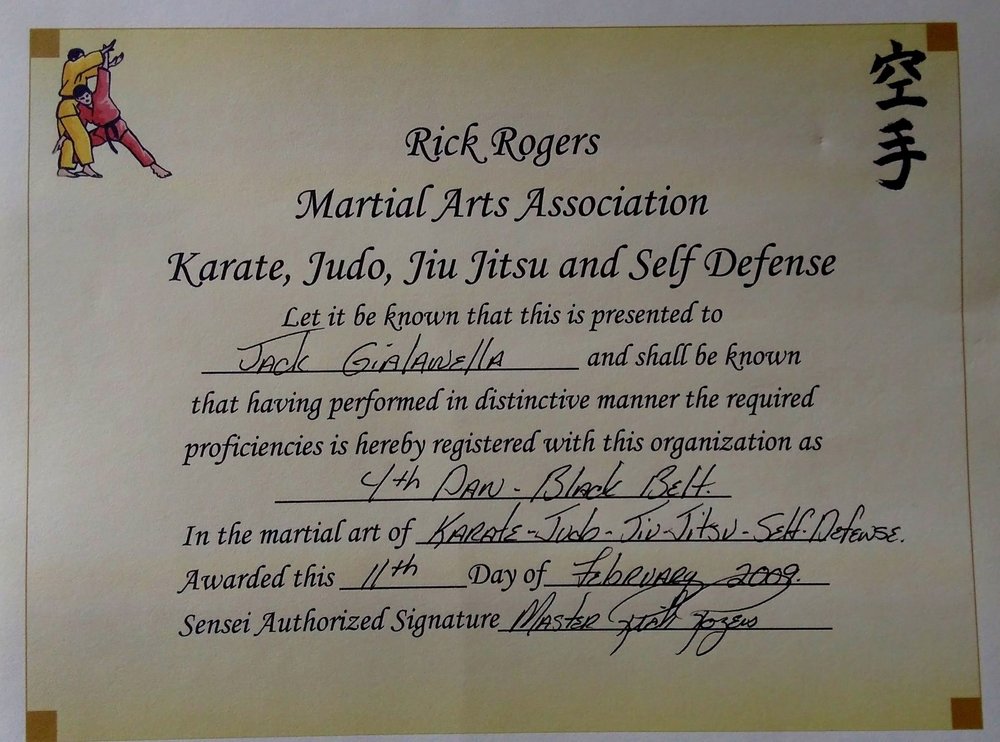 空手
Rick Rogers
Martial Arts Association
Karate, Judo, Jiu Jitsu and Self Defense
Let it be known that this is presented to
Jack Gialanella and shall be known
that having performed in distinctive manner the required
proficiencies is hereby registered with this organization as
4th Dan - Black Belt.
In the martial art of Karate - Judo - Jiu-Jitsu - Self-Defense.
Awarded this 11th Day of February 2009.
Sensei Authorized Signature Master Rick Rogers